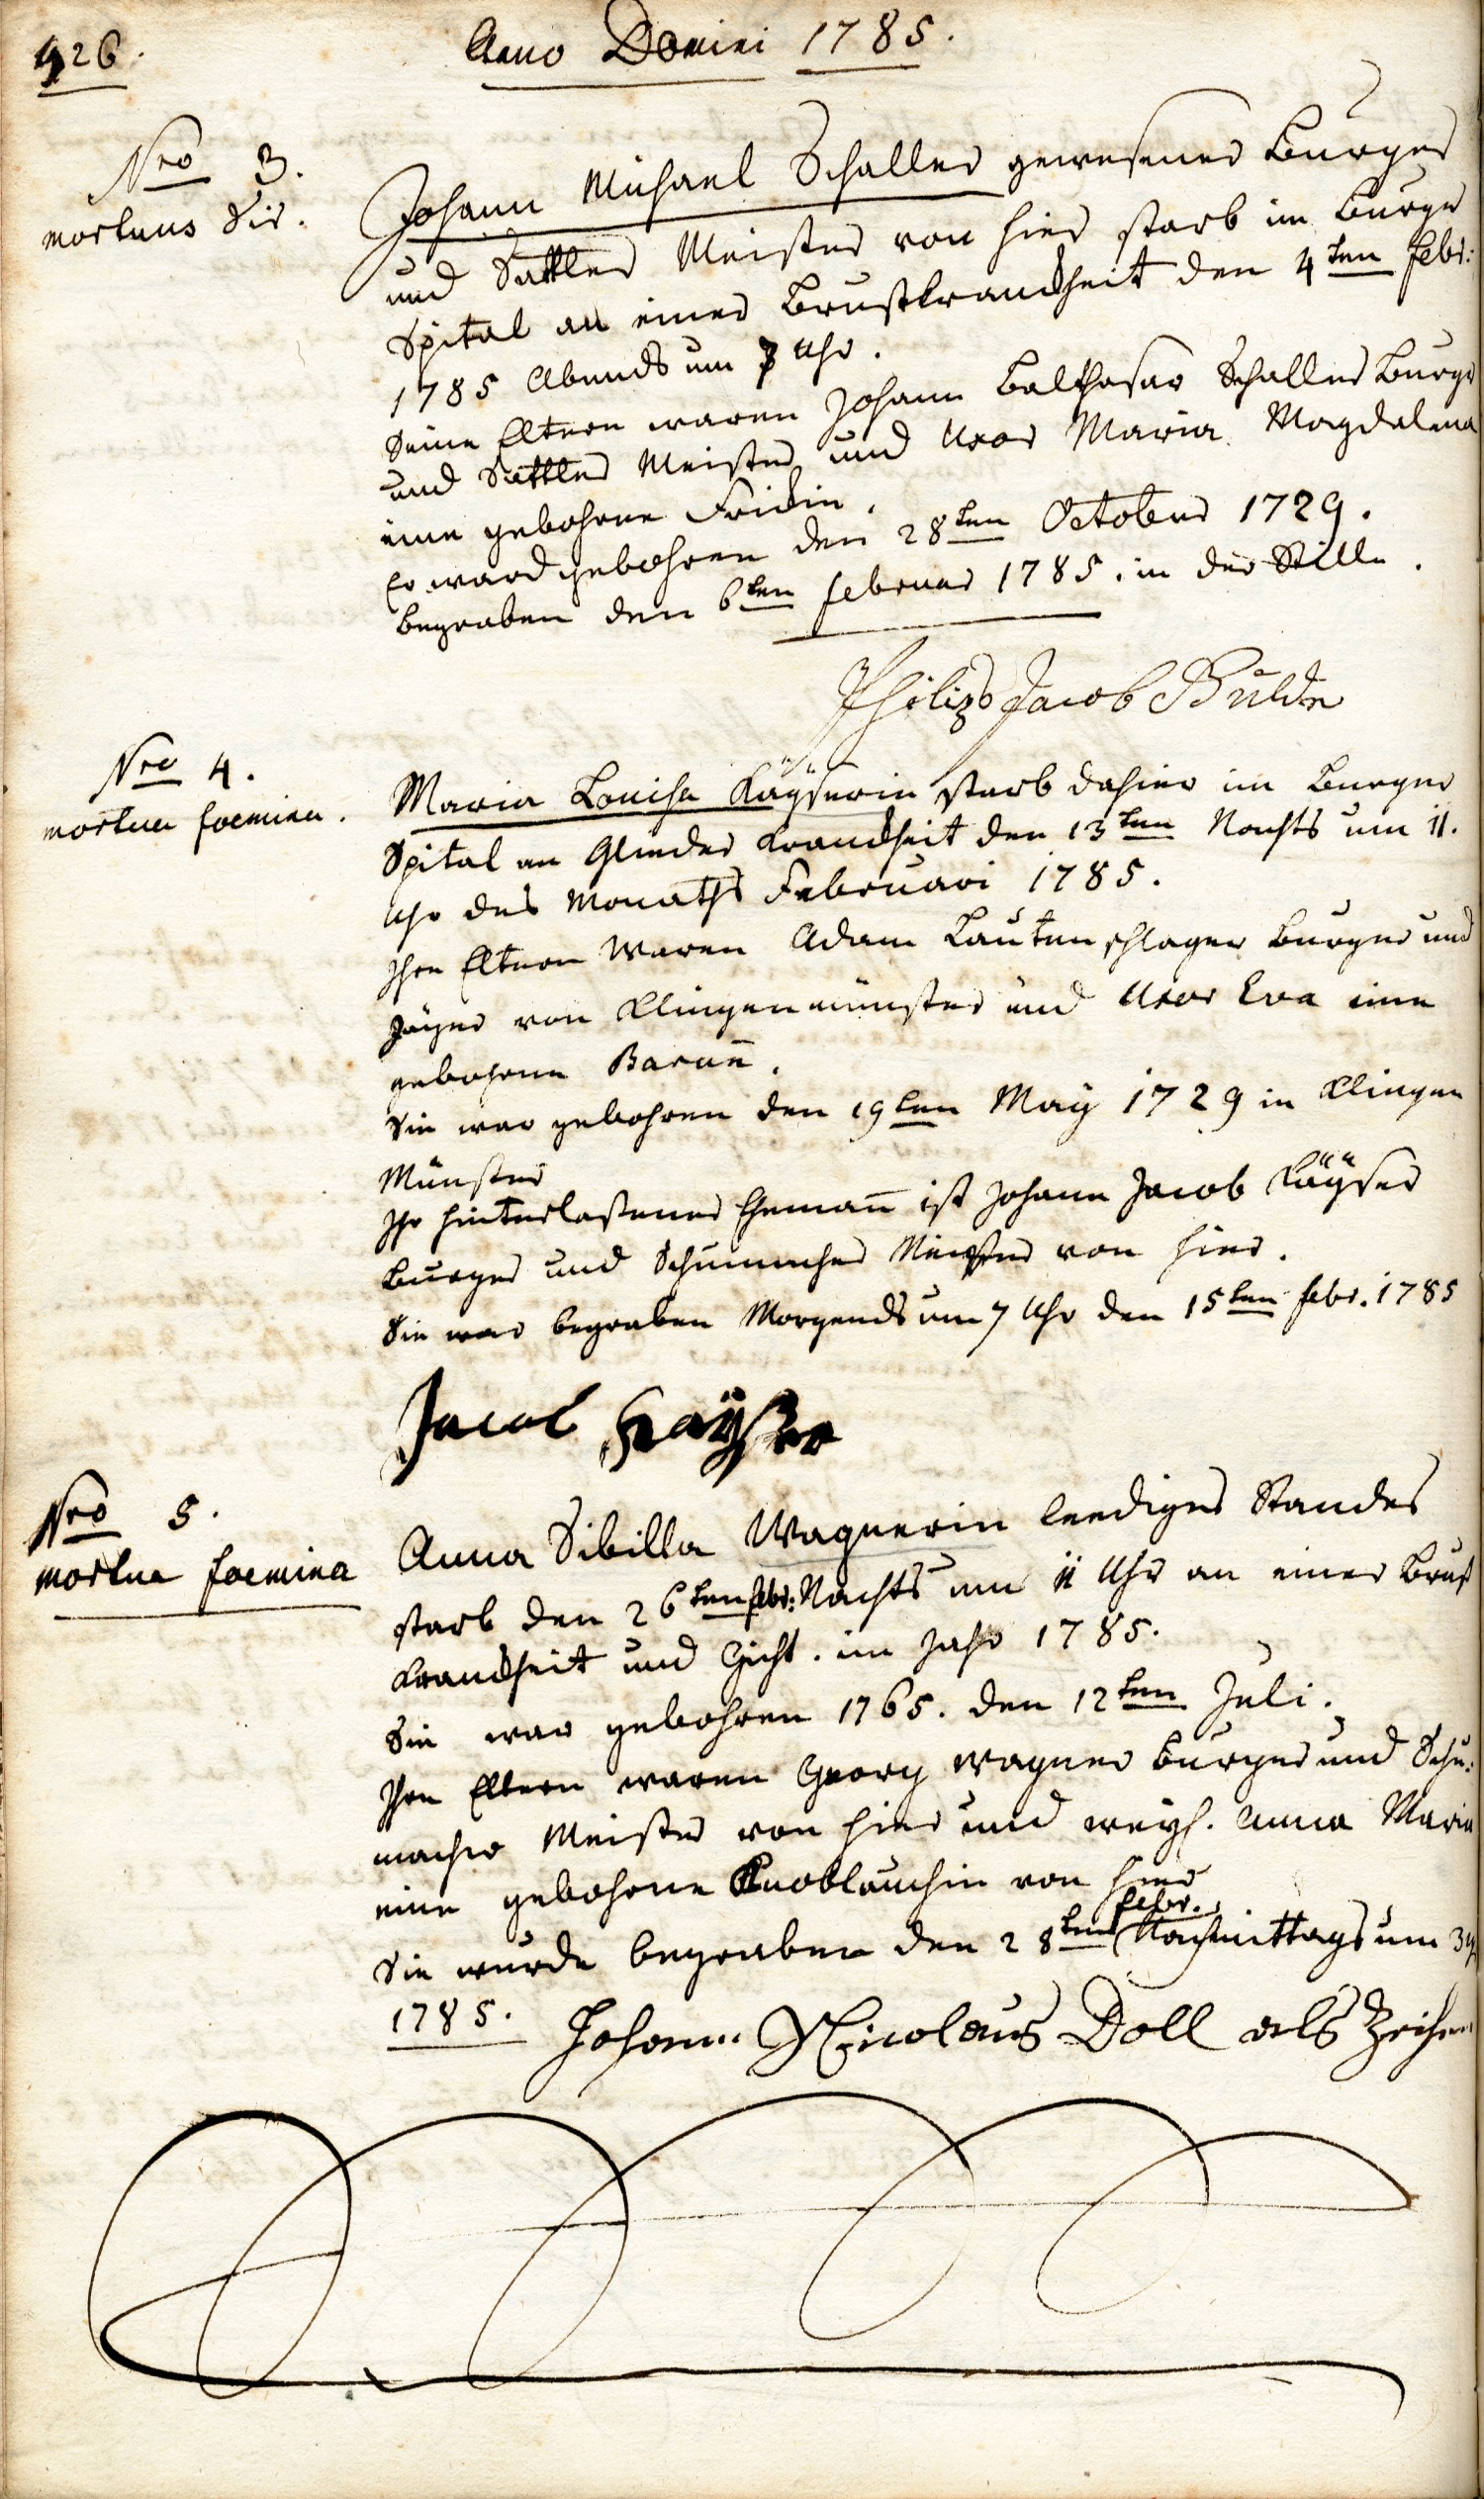 926.
Anno Domini 1785.
Nro 3.
mortuus Vir.
Johann Michael Schaller gewesener Burger
und Sattler Meister von hier starb im Burger
Spital an einer Brustkranckheit den 4ten Febr:
1785 Abends um 7 Uhr.
Seine Eltern waren Johann Balthasar Schaller Burger
und Sattler Meister und Uxor Maria Magdalena
eine gebohrne Fridin.
Er ward gebohren den 28ten October 1729.
begraben den 6ten Februar 1785. in der Stille.
Philipp Jacob
Nro 4.
mortua foemina.
Maria Louisa Kaÿserin starb dahier im Burger
Spital an Glieder Kranckheit den 13ten Nachts um 11.
Uhr des Monaths Februari 1785.
Ihre Eltern Waren Adam Lautenschlager Burger und
Jäger von Klingenmünster und Uxor Eva eine
gebohrne
Sie war gebohren den 19ten Maÿ 1729 in Klingen
Münster
Ihr hinterlaßener Ehemañ ist Johann Jacob Kaÿser
Burger und Schumacher Meister von hier.
Sie war begraben Morgends um 7 Uhr den 15ten Febr. 1785
Jacob Kaÿser
Nro 5.
mortua foemina
Anna Sibilla Wagnerin leediges Standes
starb den 26ten febr: Nachts um 11 Uhr an einer Brust
Kranckheit und Gicht. im Jahr 1785.
Sie war gebohren 1765. den 12ten Juli.
Ihre Eltern waren Georg Wagner Burger und Schu:
macher Meister von hier und weyl. Anna Maria
eine gebohrne Knoblauchin von hier
Sie wurde begraben den 28ten febr. Nachmittags um 3
1785.
Johann Nicolaus Doll als Zeihen